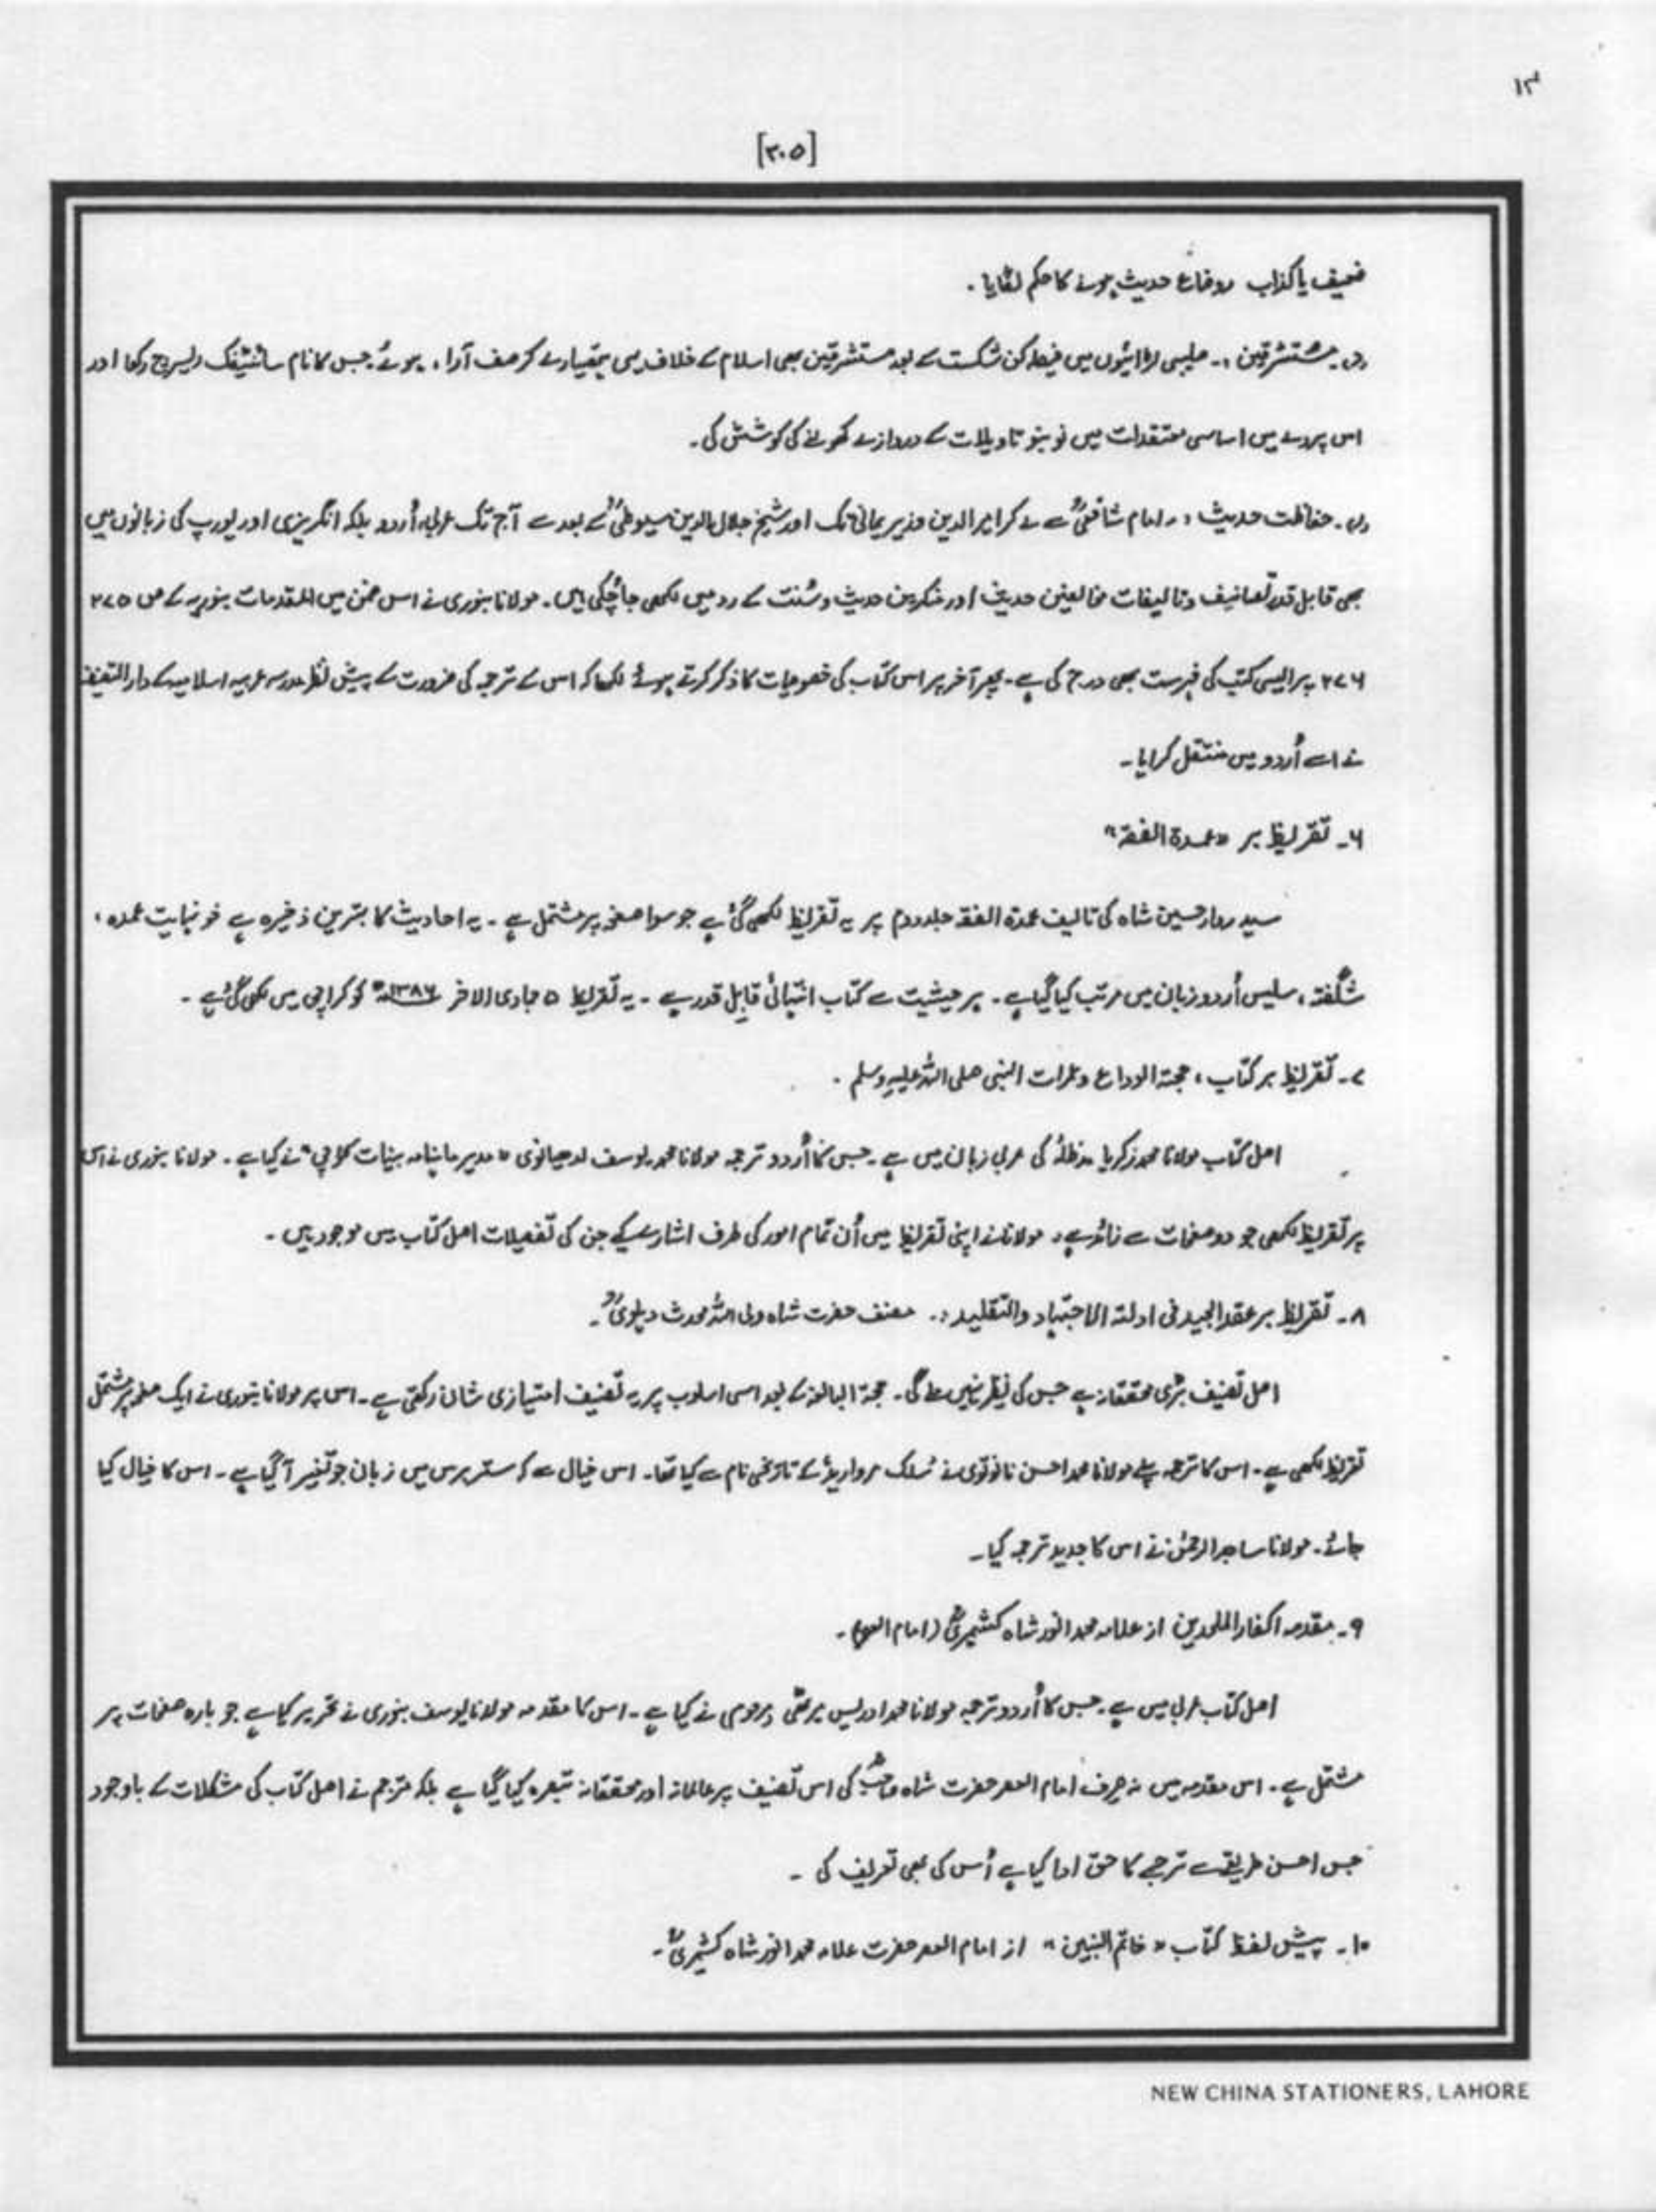 [۳۰۵]
ضعیف یا کذاب وضاع حدیث ہونے کا حکم لگایا۔
مستشرقین :۔ صلیبی لڑائیوں میں فیصلہ کن شکست کے بعد مستشرقین بھی اسلام کے خلاف یہی ہتھیار لے کر صف آرا، ہوئے۔ جس کا نام سائنٹیفک ریسرچ رکھا اور
اس پردے میں اساسی معتقدات میں نو بنو تاویلات کے دروازے کھولنے کی کوشش کی۔
حفاظت حدیث :۔ امام شافعیؒ سے لے کر امیر الدین وزیر یمانی تک اور شیخ جلال الدین سیوطیؒ کے بعد سے آج تک عربی، اُردو بلکہ انگریزی اور یورپ کی زبانوں میں
بھی قابل قدر تصانیف و تالیفات مخالفین حدیث اور منکرین حدیث و سُنت کے رد میں لکھی جا چُکی ہیں۔ مولانا بنوری نے اس ضمن میں المقدمات بنوریہ کے ص ۲۷۵
۲۷۶ پر ایسی کتب کی فہرست بھی درج کی ہے۔ پھر آخر پر اس کتاب کی خصوصیات کا ذکر کرتے ہوئے لکھا کہ اس کے ترجمہ کی ضرورت کے پیش نظر مدرسہ عربیہ اسلامیہ کے دار التصنیف
نے اسے اُردو میں منتقل کرایا۔
۶۔ تقریظ بر "عمدة الفقة"
سید زوار حسین شاہ کی تالیف عمدة الفقہ جلد دوم پر یہ تقریظ لکھی گئی ہے جو سوا صفحہ پر مشتمل ہے۔ یہ احادیث کا بہترین ذخیرہ ہے خو نہایت عمدہ،
شگفتہ، سلیس اُردو زبان میں مرتب کیا گیا ہے۔ ہر حیثیت سے کتاب انتہائی قابل قدر ہے۔ یہ تقریظ ۵ جمادی الاخر ۱۳۸۶ھ کو کراچی میں لکھی گئی ہے۔
۷۔ تقریظ بر کتاب، حجتہ الوداع و عمرات النبی صلی اللہ علیہ وسلم۔
اصل کتاب مولانا محمد زکریا مدظلہٗ کی عربی زبان میں ہے۔ جس کا اُردو ترجمہ مولانا محمد یوسف لدھیانوی "مدیر ماہنامہ بینات کراچی" نے کیا ہے۔ مولانا بنوری نے اس
پر تقریظ لکھی جو دو صفحات سے زائد ہے۔ مولانا نے اپنی تقریظ میں اُن تمام امور کی طرف اشارے کیے جن کی تفصیلات اصل کتاب میں موجود ہیں۔
۸۔ تقریظ بر عقد الجید فی ادلتہ الاجتہاد والتقلید :۔ مصنف حضرت شاہ ولی اللہ محدث دہلویؒ۔
اصل تصنیف بڑی محققانہ ہے جس کی نظیر نہیں ملے گی۔ حجة البالغہ کے بعد اسی اسلوب پر یہ تصنیف امتیازی شان رکھتی ہے۔ اس پر مولانا بنوری نے ایک صفحہ پر مشتمل
تقریظ لکھی ہے۔ اس کا ترجمہ پہلے مولانا محمد احسن نانوتوی نے سُلک مروارید کے تاریخی نام سے کیا تھا۔ اس خیال سے کہ ستر برس میں زبان جو تغیر آ گیا ہے۔ اس کا خیال کیا
جائے۔ مولانا ساجد الرحمٰن نے اس کا جدید ترجمہ کیا۔
۹۔ مقدمہ اکفار الملحدین از علامہ محمد انور شاہ کشمیریؒ (امام العصر)۔
اصل کتاب عربی میں ہے۔ جس کا اُردو ترجمہ مولانا محمد ادریس میرٹھی مرحوم نے کیا ہے۔ اس کا مقدمہ مولانا یوسف بنوری نے تحریر کیا ہے جو بارہ صفحات پر
مشتمل ہے۔ اس مقدمہ میں نہ صرف امام العصر حضرت شاہ صاحبؒ کی اس تصنیف پر عالمانہ اور محققانہ تبصرہ کیا گیا ہے بلکہ مترجم نے اصل کتاب کی مشکلات کے باوجود
جس احسن طریقے سے ترجمے کا حق ادا کیا ہے اُس کی بھی تعریف کی۔
۱۰۔ پیش لفظ کتاب "خاتم النبین" از امام العصر حضرت علامہ محمد انور شاہ کشمیریؒ۔
NEW CHINA STATIONERS, LAHORE